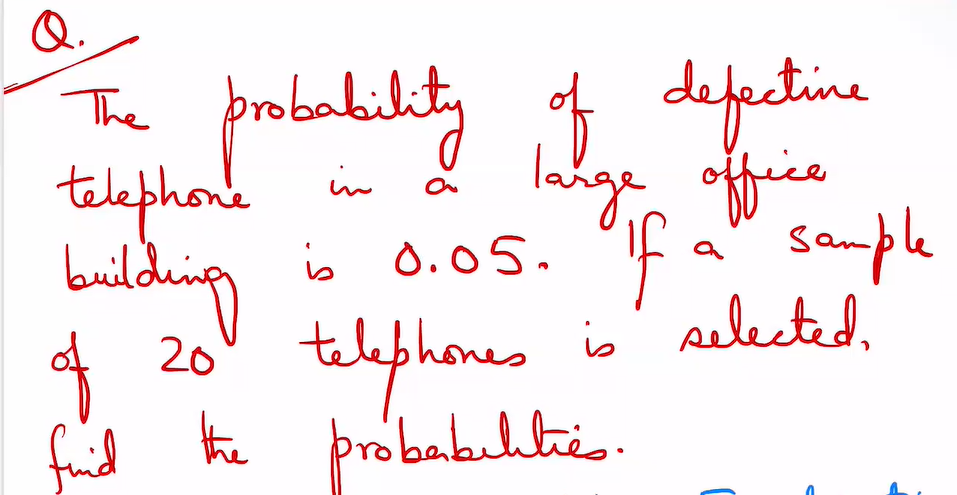 Q.
The probability of defective
telephone in a large office
building is 0.05. If a sample
of 20 telephones is selected,
find the probabilities.